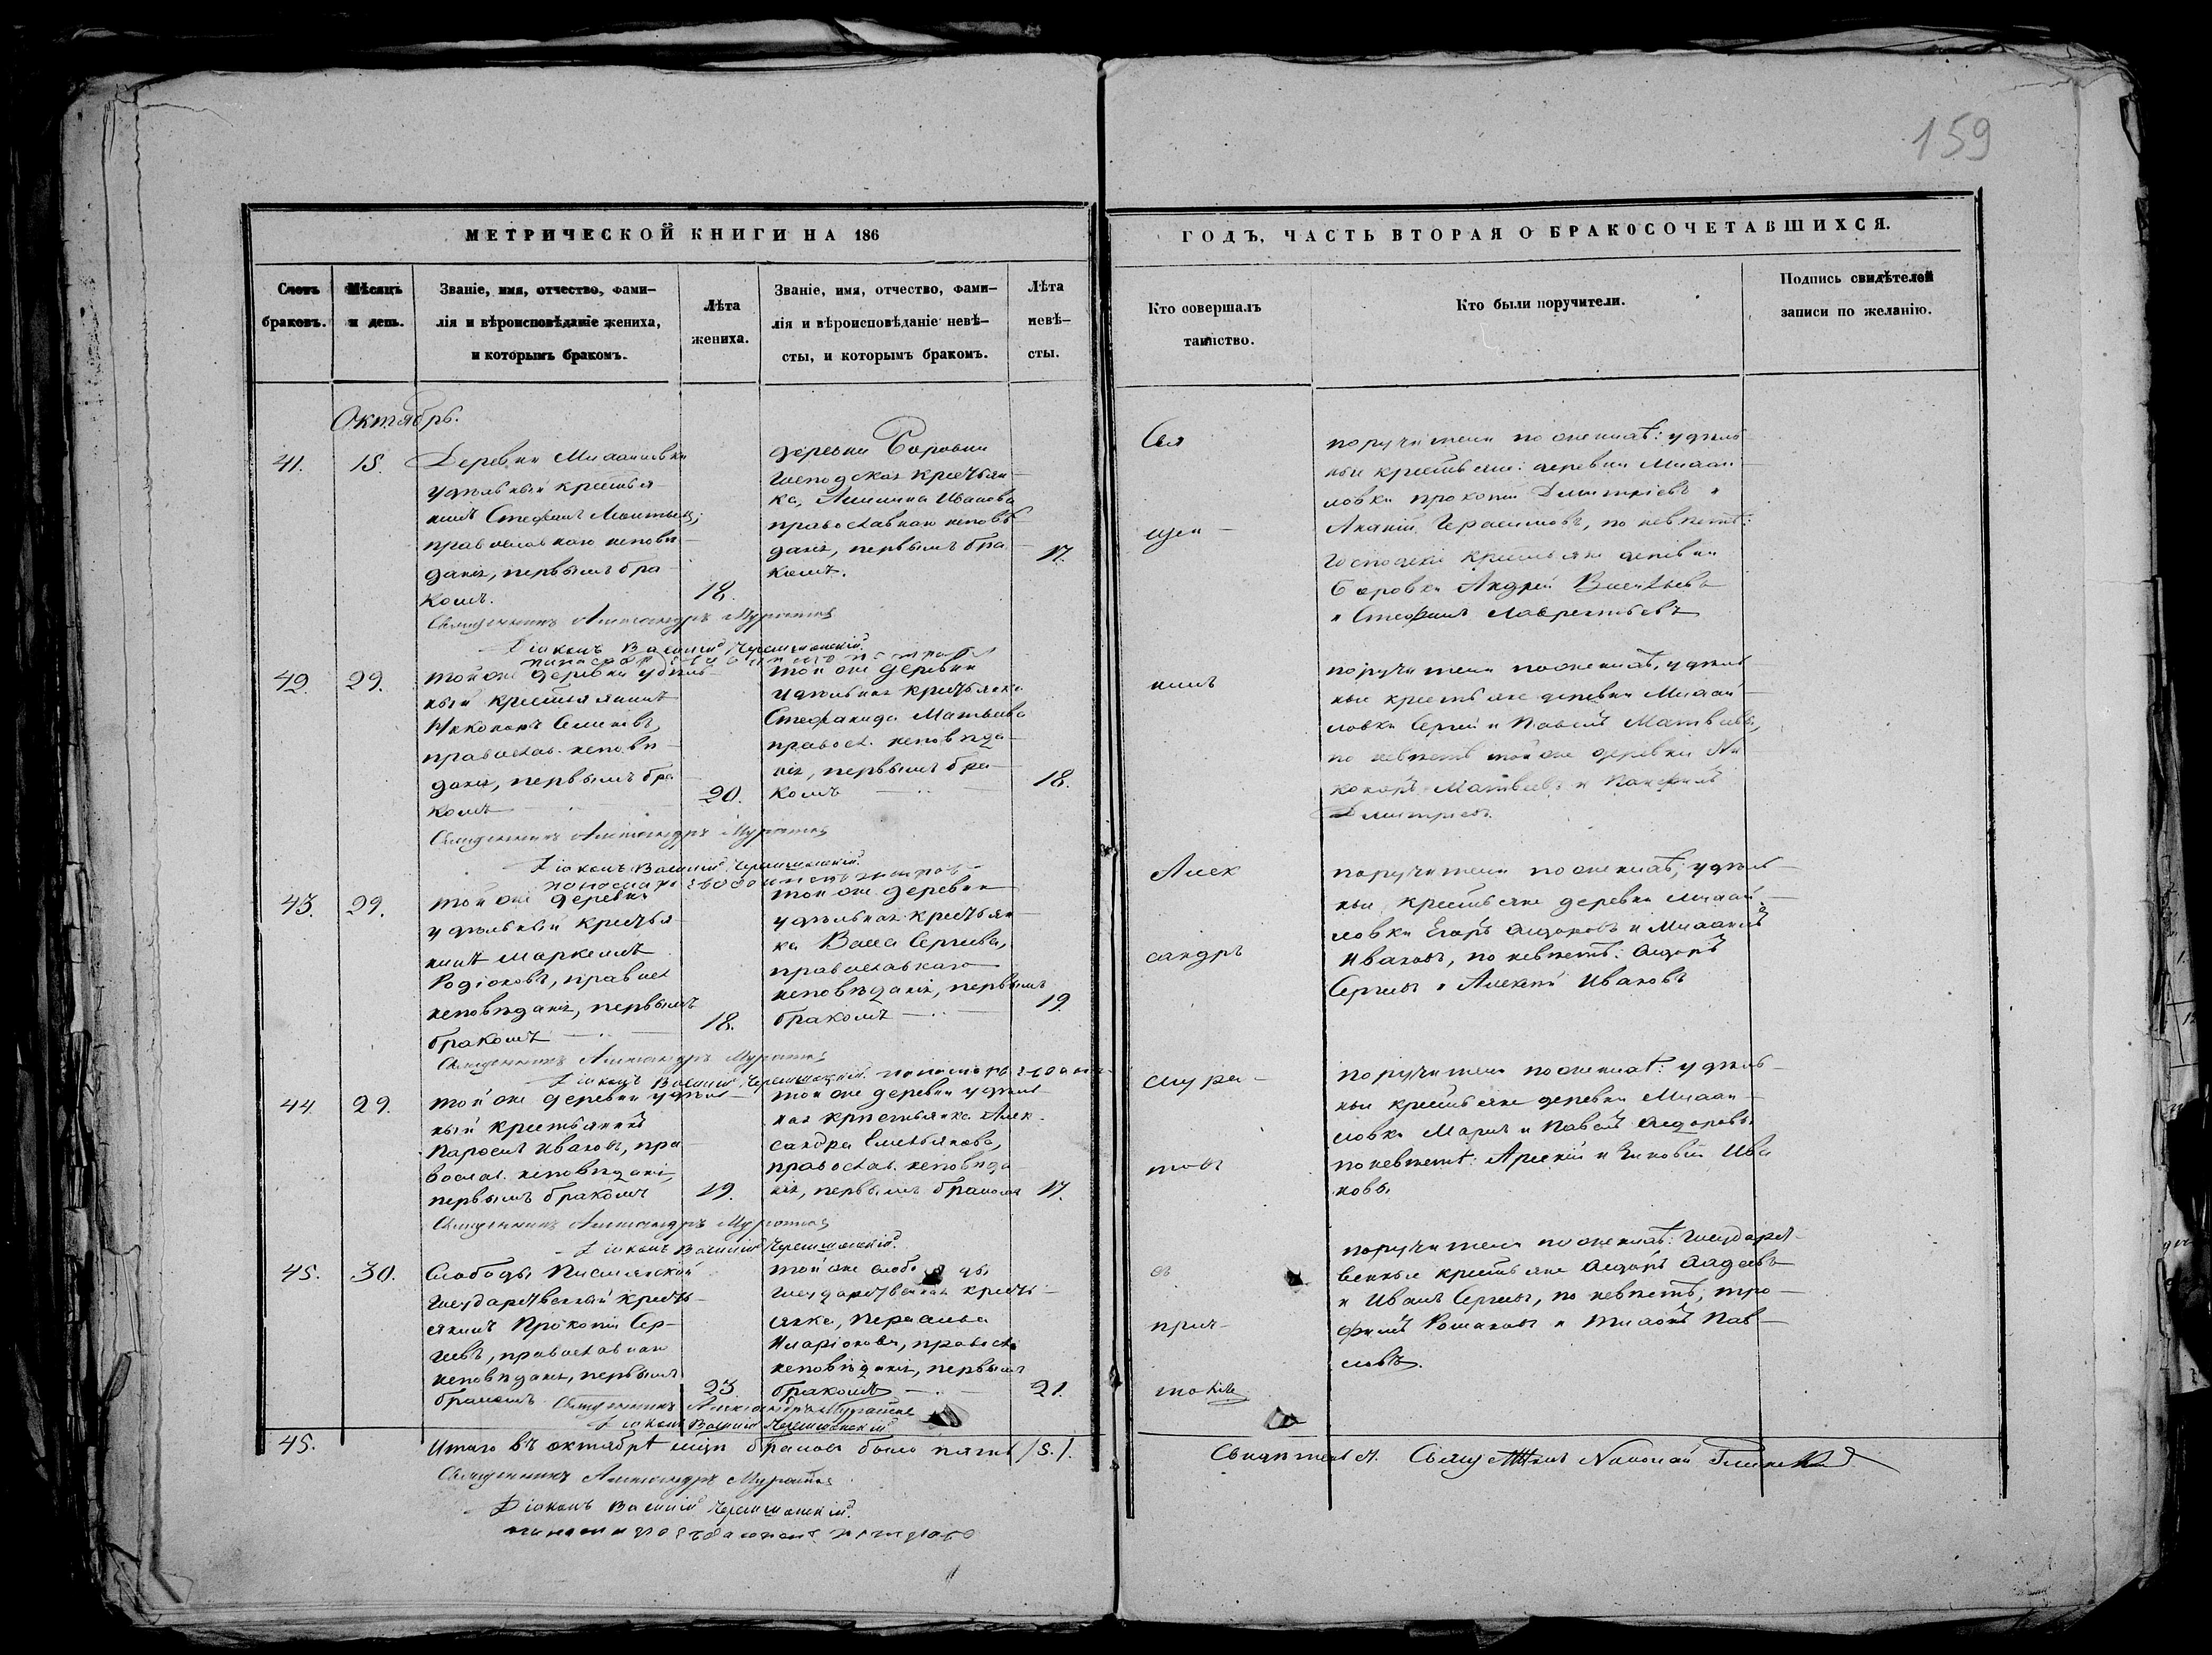 159
МЕТРИЧЕСКОЙ КНИГИ НА 186
ГОДЪ, ЧАСТЬ ВТОРАЯ О БРАКОСОЧЕТАВШИХСЯ.
Счетъ браковъ.
Мѣсяцъ и день.
Званіе, имя, отчество, фами-
лія и вѣроисповѣданіе жениха,
и которымъ бракомъ.
Лѣта
жениха.
Званіе, имя, отчество, фами-
лія и вѣроисповѣданіе невѣ-
сты, и которымъ бракомъ.
Лѣта
невѣ-
сты.
Кто совершалъ
таинство.
Кто были поручители.
Подпись свидѣтелей
записи по желанію.
Октябрь.
41. 15.
Деревни
удѣльный крестья
нинъ Стефанъ Леонтьевъ;
православнаго исповѣ-
данія, первымъ бра-
комъ.
18.
деревни Боровки
господская крестьян-
ка, Иванова
православнаго исповѣ-
данія, первымъ бра
комъ.
17.
поручители по женихѣ: удѣль
ные крестьяне: деревни Михай
ловки Прокопій Димитріевъ и
Ананій Герасимовъ, по невѣстѣ:
господскіе крестьяне деревни
Боровки Андрей Васильевъ
и Стефанъ Лаврентьевъ
Священникъ Александръ
Діаконъ Василій
42. 29.
той же деревни удѣль-
ный крестьянинъ
Никоноръ Семеновъ,
православ. исповѣ-
данія, первымъ бра-
комъ
20.
той же деревни
удѣльная крестьянка
Стефанида Матвѣева
правосл. исповѣда-
нія, первымъ бра-
комъ
18.
поручители по женихѣ, удѣль
ные крестьяне деревни Михай-
ловки Сергій и Павелъ Матвѣевы,
по невѣстѣ той же деревни Ни
коноръ Матвѣевъ и Панфилъ
Димитріевъ.
Священникъ Александръ
Діаконъ Василій
43. 29.
той же деревни
удѣльный крестья
нинъ Маркеллъ
Родіоновъ, правосл
исповѣданія, первымъ
бракомъ
18.
той же деревни
удѣльная крестьян-
ка Васса Сергѣева,
православнаго
исповѣданія, первымъ
бракомъ
19.
поручители по женихѣ, удѣль-
ные крестьяне деревни Михай-
ловки Егоръ Сидоровъ и Михаилъ
Ивановъ, по невѣстѣ: Сидоръ
Сергѣевъ и Алексѣй Ивановъ
Священникъ Александръ
Діаконъ Василій
44. 29.
той же деревни удѣль-
ный крестьянинъ
Ивановъ, пра-
вослав. исповѣданія,
первымъ бракомъ
19.
той же деревни удѣль-
ная крестьянка Алек-
сандра Емельянова,
православ. исповѣда
нія, первымъ бракомъ
17.
поручители по женихѣ: удѣль-
ные крестьяне деревни Михай-
ловки и Павелъ Сидоровы
по невѣстѣ: Арсеній и Зиновій Ива
новы.
Священникъ Александръ
Діаконъ Василій
45. 30.
Слободы
государственный кресть-
янинъ Прокопій Сер-
гѣевъ, православнаго
исповѣданія, первымъ
бракомъ
23.
той же слободы
государственная кресть-
янка,
Иларіонова, правосл.
исповѣданія, первымъ
бракомъ
21.
поручители по женихѣ: государст-
венные крестьяне Сидоръ
и Иванъ Сергѣевъ, по невѣстѣ, Тро-
фимъ Романовъ и Пав-
ловъ.
Священникъ Александръ
Діаконъ Василій
Свя
щен-
никъ
Алек
сандръ
съ
прич-
томъ
45. Итого въ октябрѣ мцѣ браковъ было пять /5./.
Священникъ Александръ
Діаконъ Василій
Николай